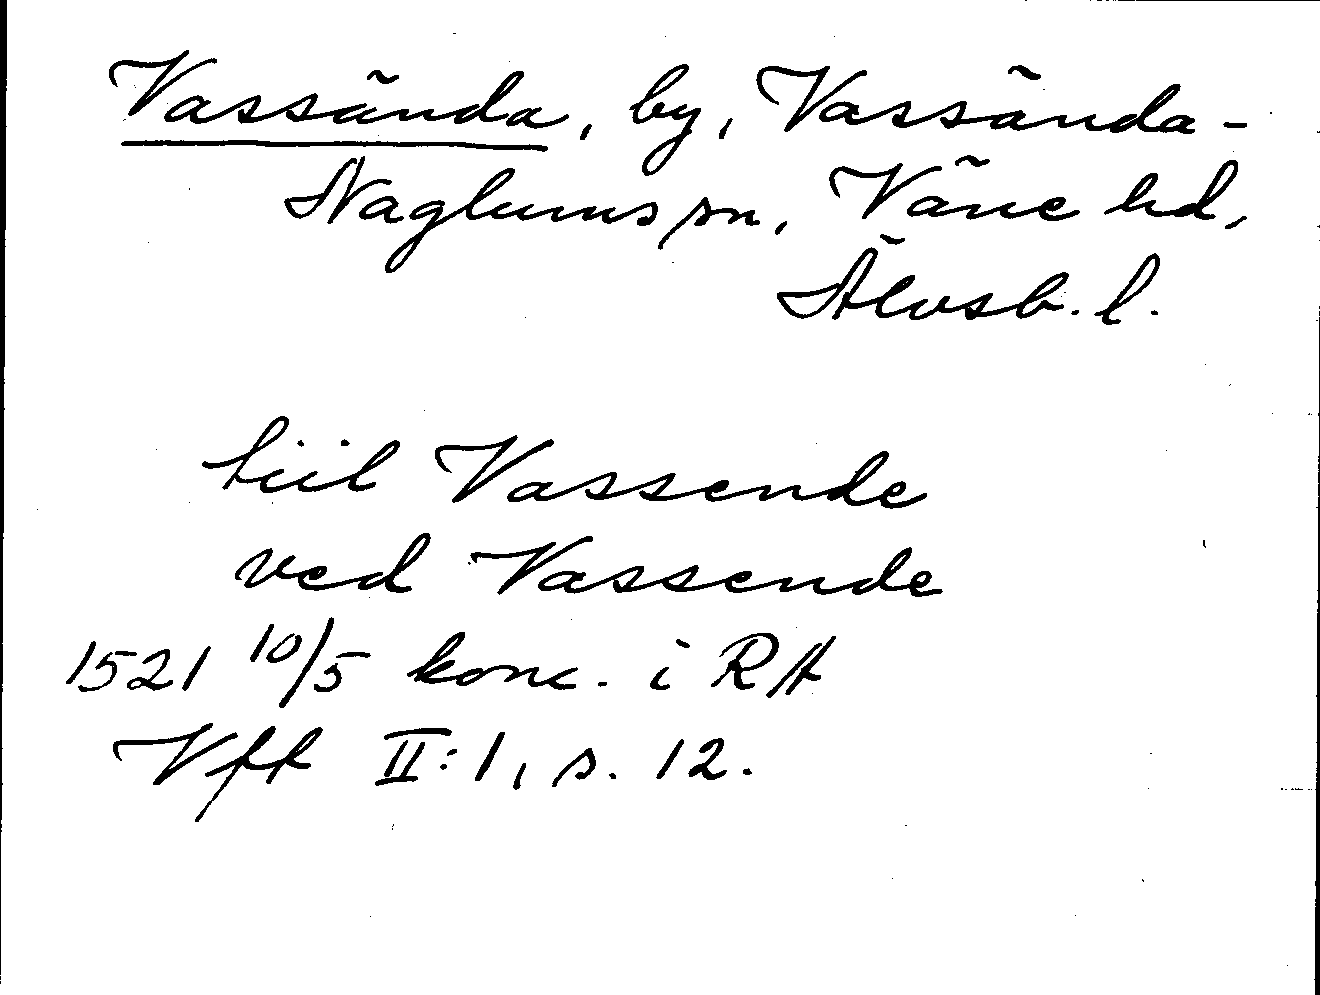 Vassända, by, Vassända-
Naglums sn, Väne hd,
Älvsb. l.
tiil Vassende
ved Vassende
1521 10/5 konc. i RA
Vff II:1, s. 12.